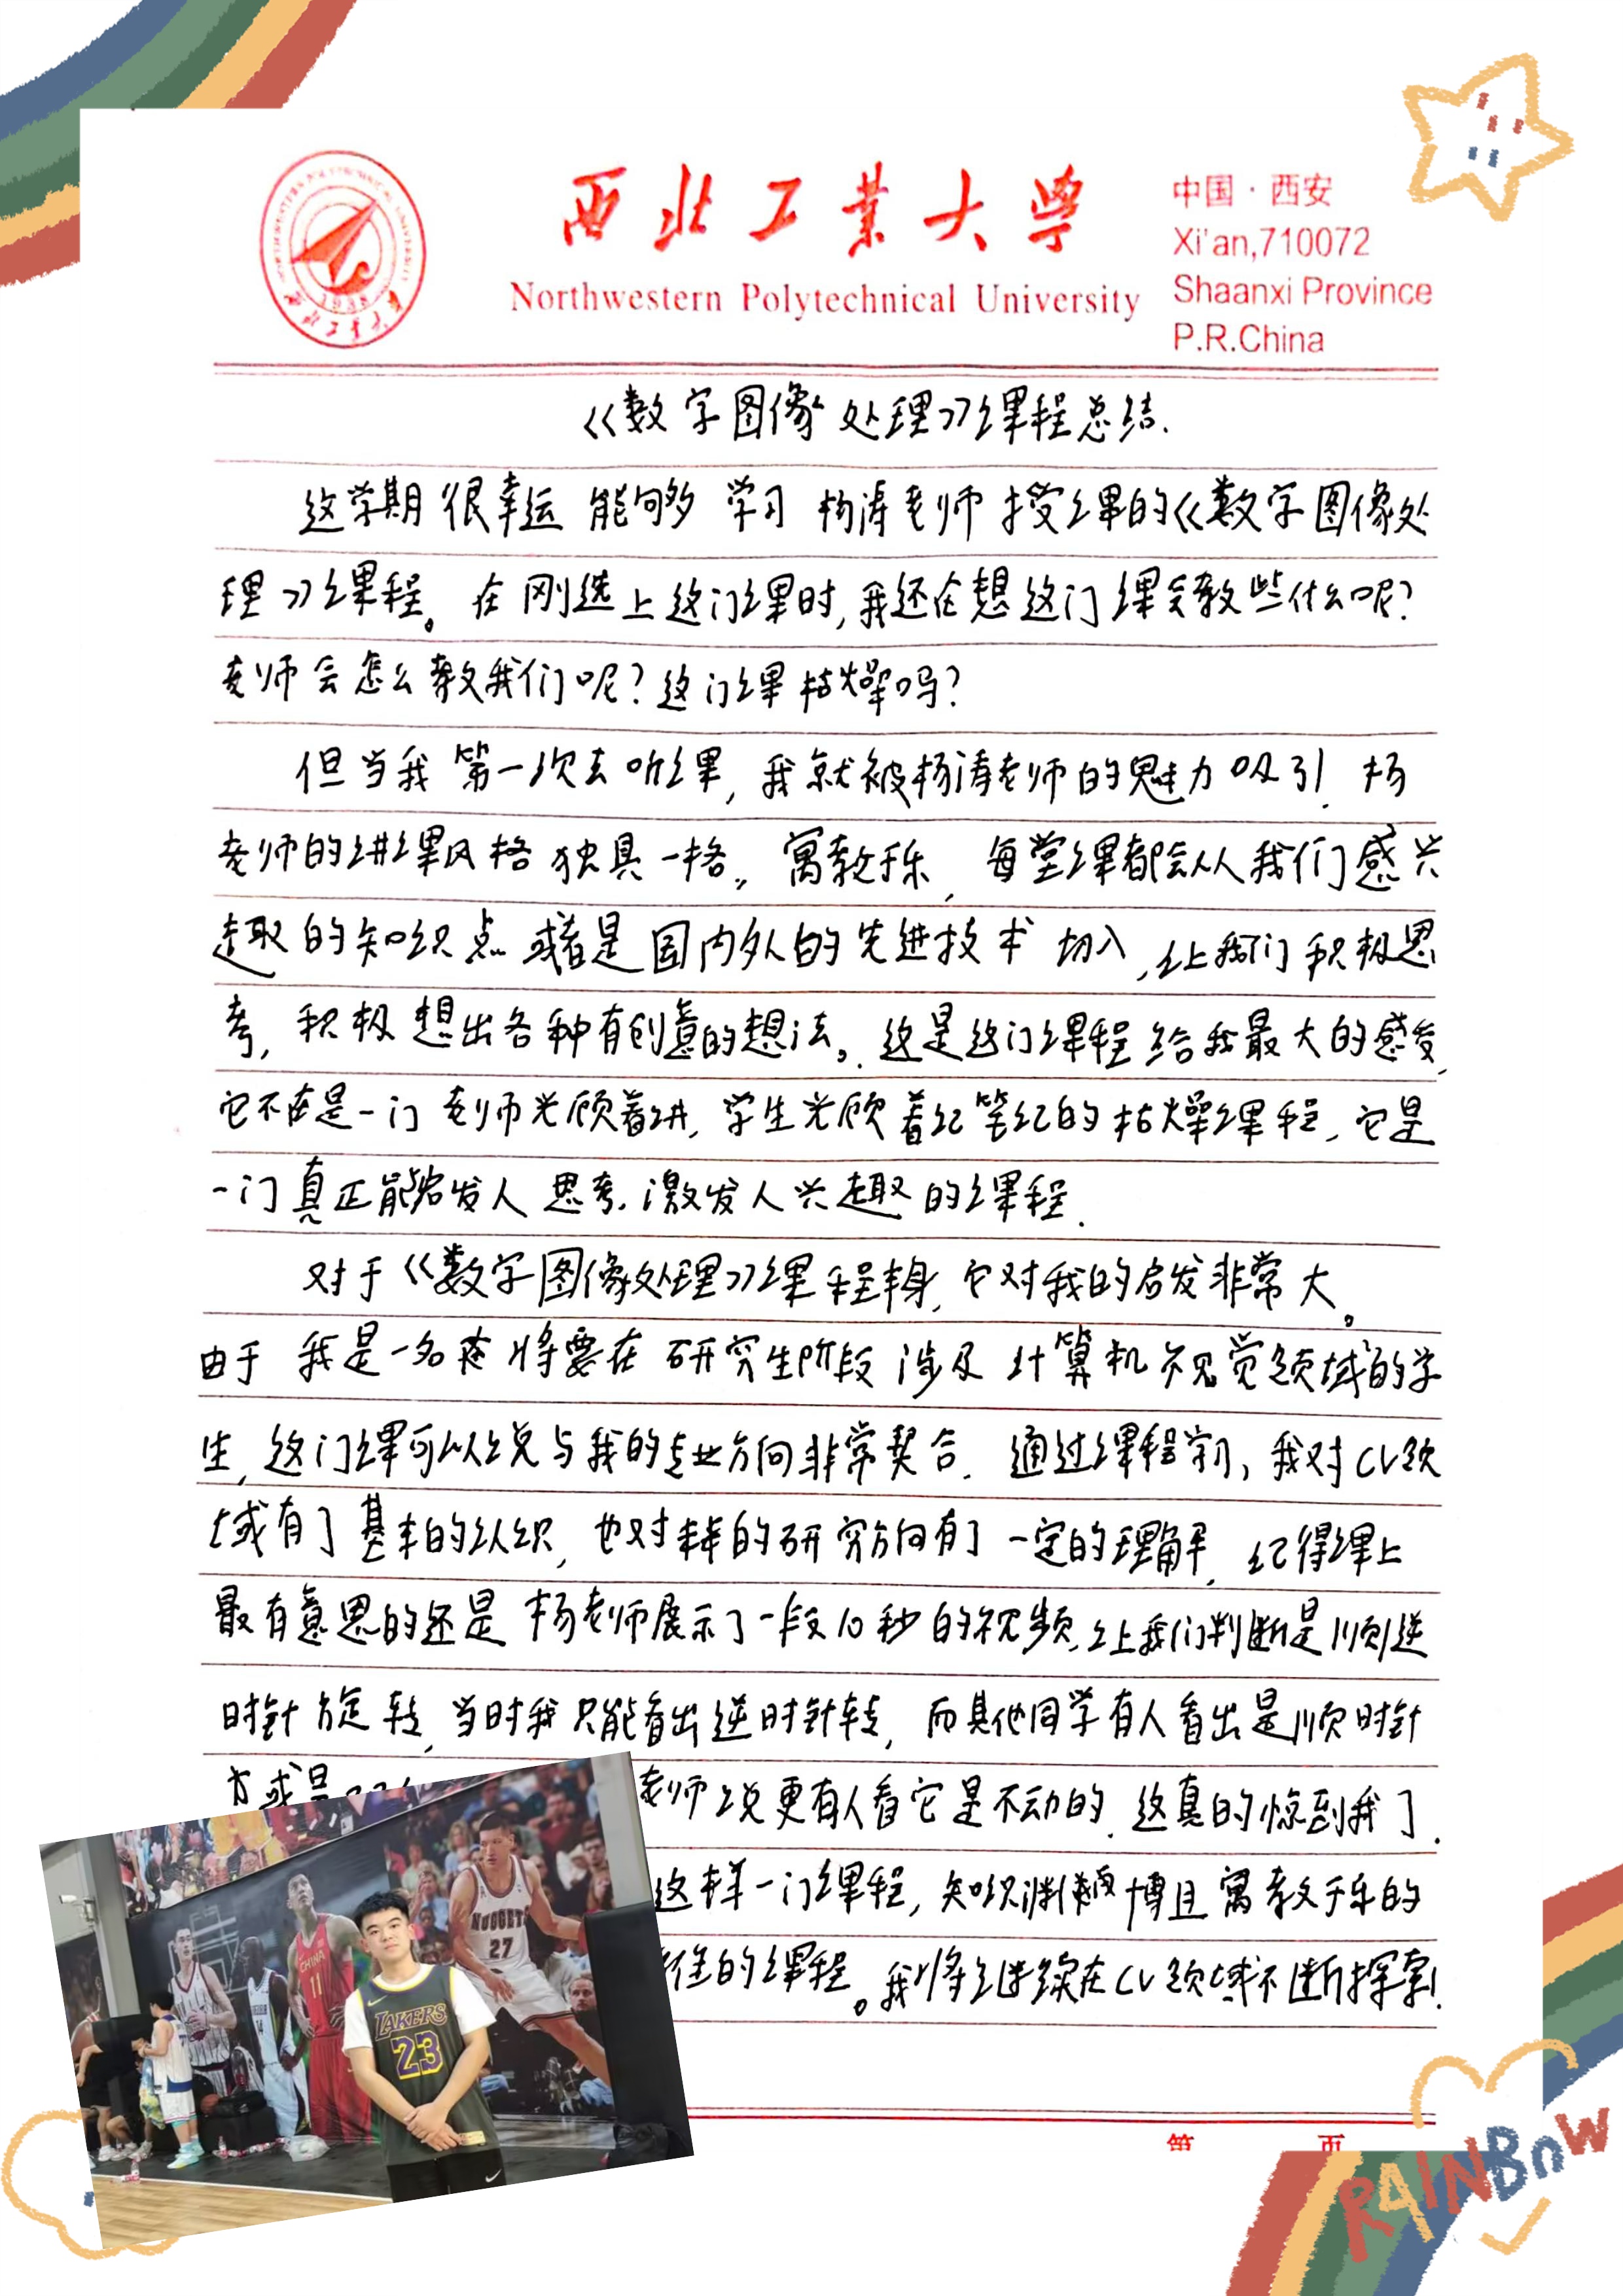 西北工业大学
Northwestern Polytechnical University
中国·西安
Xi'an,710072
Shaanxi Province
P.R.China
1938
西北工业大学
《数字图像处理》课程总结.
这学期很幸运能够学习杨涛老师授课的《数字图像处
理》课程。在刚选上这门课时,我还在想这门课会教些什么呢?
老师会怎么教我们呢?这门课枯燥吗?
但当我第一次去听课,我就被杨涛老师的魅力吸引.杨
老师的讲课风格独具一格。寓教于乐,每堂课都会从我们感兴
趣的知识点或者是国内外的先进技术切入,让我们积极思
考,积极想出各种有创意的想法。这是这门课程给我最大的感受,
它不是一门老师光顾着讲,学生光顾着记笔记的枯燥课程,它是
一门真正能启发人思考,激发人兴趣的课程.
对于《数字图像处理》课程本身,它对我的启发非常大。
由于我是一名将要在研究生阶段涉及计算机视觉领域的学
生,这门课可以说与我的专业方向非常契合.通过课程学习,我对CV领
域有了基本的认识,也对未来的研究方向有了一定的理解,记得课上
最有意思的还是杨老师展示了一段10秒的视频,让我们判断是顺逆
时针旋转,当时我只能看出逆时针转,而其他同学有人看出是顺时针
老师说更有人看它是不动的.这真的惊到我了.
这样一门课程,知识渊博且寓教于乐的
的课程。我将继续在CV领域不断探索!
NUGGETS
27
CHINA
11
14
LAKERS
23
第 页
RAINBOW